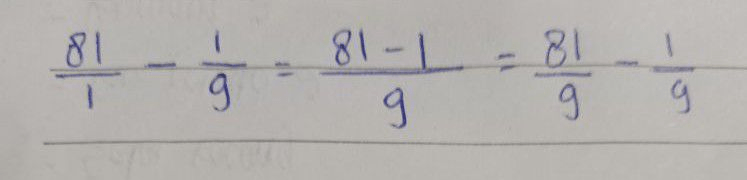 81/1 - 1/9 = (81-1)/9 = 81/9 - 1/9